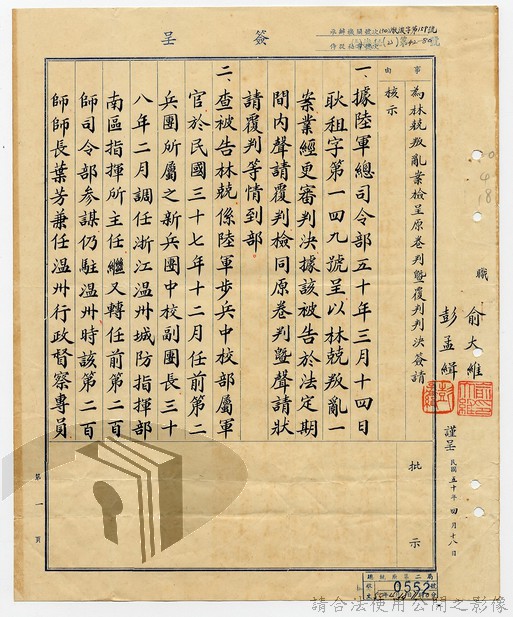 簽呈
事由
為林兢叛亂案檢呈原卷判暨覆判判決簽請
核示
職
俞大維
彭孟緝
謹呈
民國五十年四月十八日
一、據陸軍總司令部五十年三月十四日
耿租字第一四九號呈以林兢叛亂一
案業經更審判決據該被告於法定期
間內聲請覆判檢同原卷判暨聲請狀
請覆判等情到部
二、查被告林兢係陸軍步兵中校部屬軍
官於民國三十七年十二月任前第二
兵團所屬之新兵團中校副團長三十
八年二月調任浙江溫州城防指揮部
南區指揮所主任繼又轉任前第二百
師司令部參謀仍駐溫州時該第二百
師師長葉芳兼任溫州行政督察專員
批示
第一頁
0552
請合法使用公開之影像